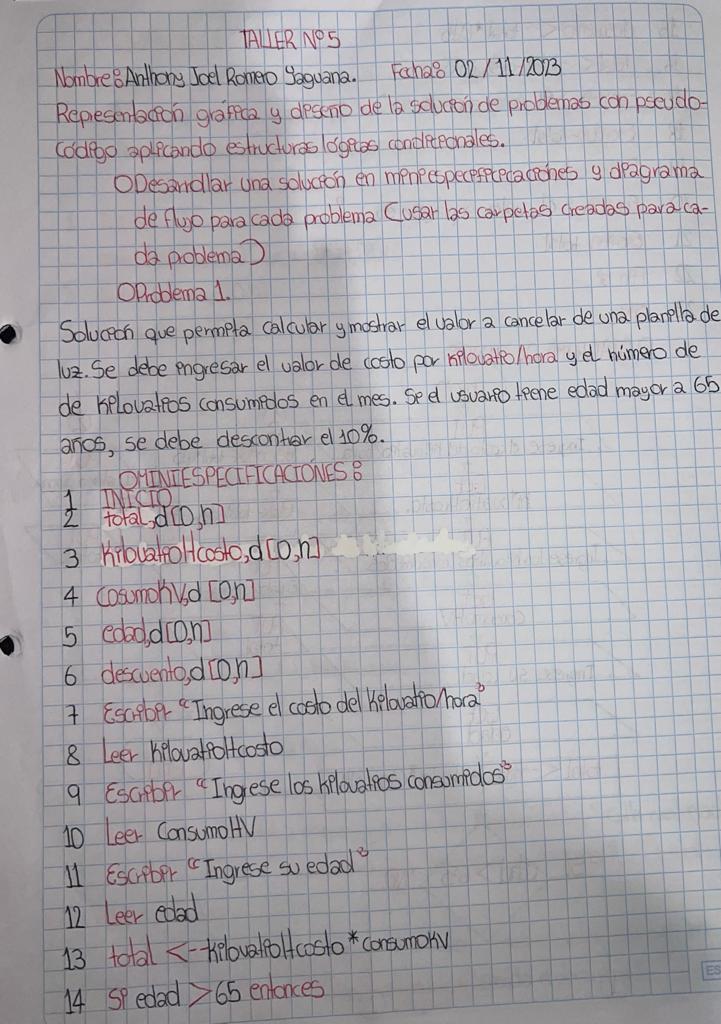 TALLER Nº5
Nombre: Anthony Joel Romero Yaguana. Fecha: 02/11/2023
Representación gráfica y diseño de la solución de problemas con pseudo-
código aplicando estructuras lógicas condicionales.
O Desarrollar una solución en miniespecificaciones y diagrama
de flujo para cada problema (usar las carpetas creadas para ca-
da problema)
O Problema 1.
Solución que permita calcular y mostrar el valor a cancelar de una planilla de
luz. Se debe ingresar el valor de costo por kilovatio/hora y el número de
de kilovatios consumidos en el mes. Si el usuario tiene edad mayor a 65
años, se debe descontar el 10%.
O MINIESPECIFICACIONES:
1 INICIO
2 total,d[0,n]
3 KilovatioHcosto,d[0,n]
4 cosumoKV,d[0,n]
5 edad,d[0,n]
6 descuento,d[0,n]
7 Escribir "Ingrese el costo del kilovatio/hora"
8 Leer kilovatioHcosto
9 Escribir "Ingrese los kilovatios consumidos"
10 Leer ConsumoHV
11 Escribir "Ingrese su edad"
12 Leer edad
13 total <-- kilovatioHcosto * consumoKV
14 Si edad > 65 entonces
ES